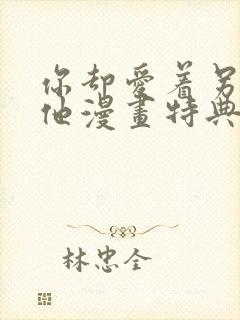 你却愛着另
他漫畫特典
林忠全